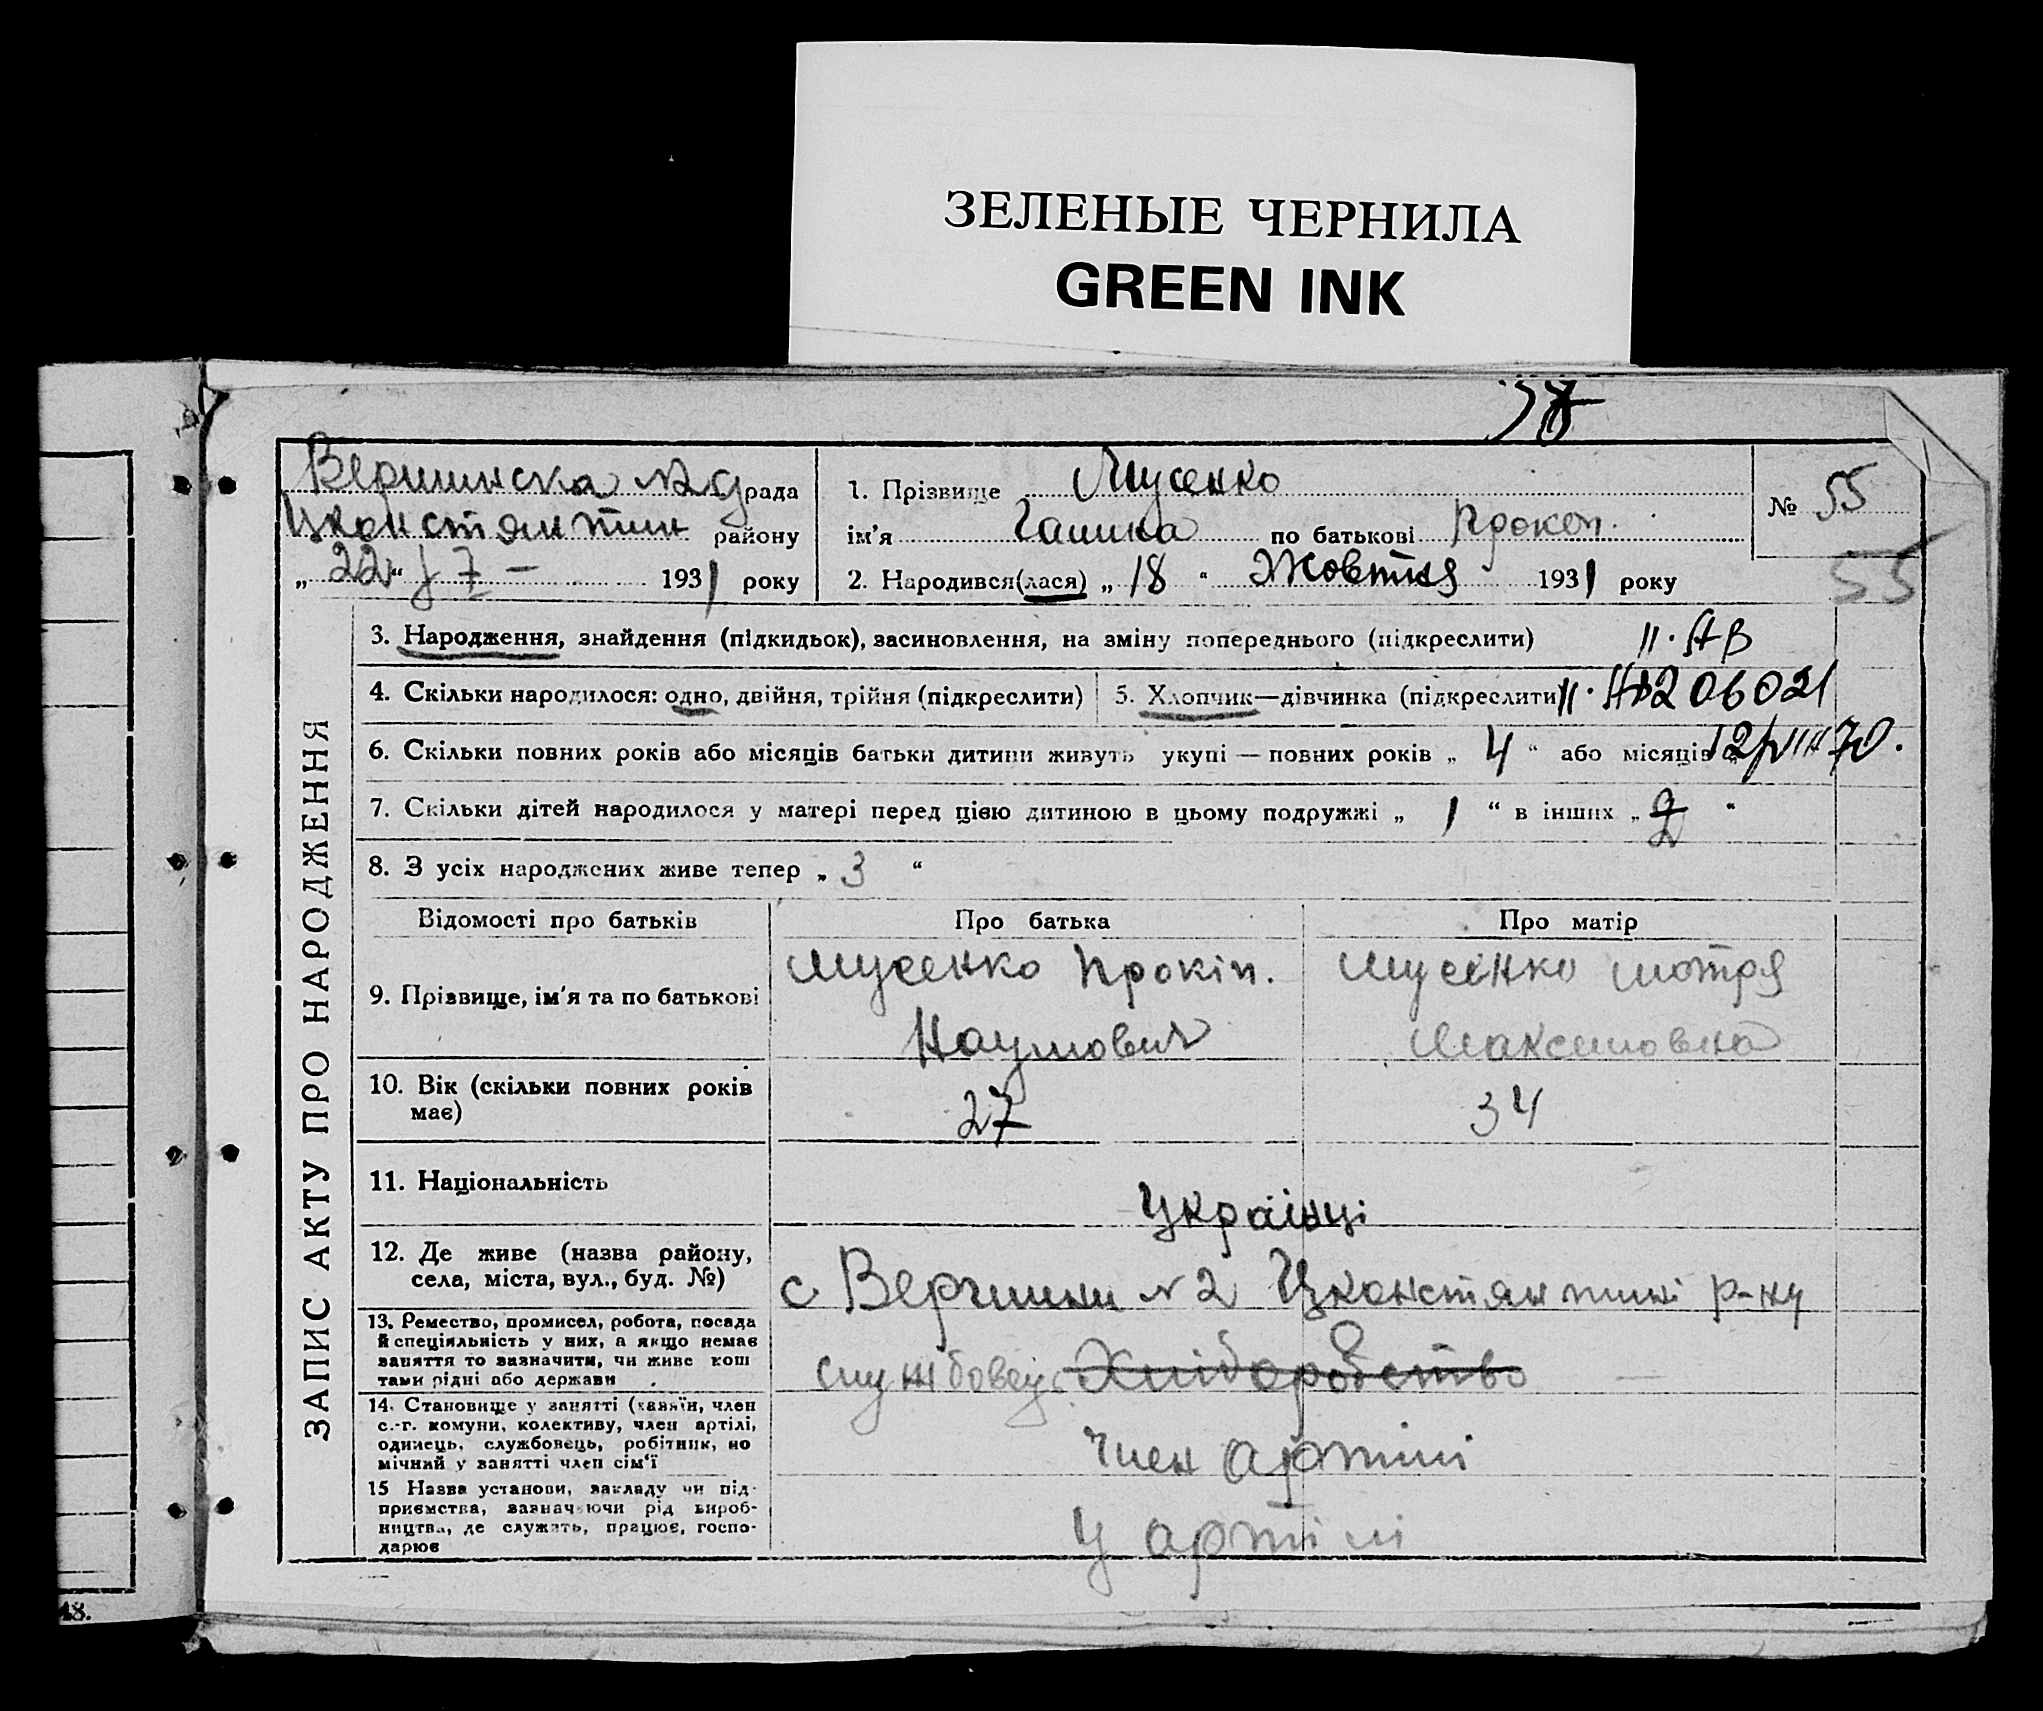 ЗЕЛЕНЫЕ ЧЕРНИЛА
GREEN INK
37
Вершинска №2 рада
Цконстянтин району
„22“ 1931 року
1. Прізвище Мусенко
ім'я Галина по батькові Прокоп.
2. Народився(лася) „18“ Жовтня 1931 року
№ 55
55
ЗАПИС АКТУ ПРО НАРОДЖЕННЯ
3. Народження, знайдення (підкидьок), засиновлення, на зміну попереднього (підкреслити)
II. АВ
4. Скільки народилося: одно, двійня, трійня (підкреслити)
5. Хлопчик—дівчинка (підкреслити)
II. 206021
6. Скільки повних років або місяців батьки дитини живуть укупі — повних років „4“ або місяців
12/VIII 70.
7. Скільки дітей народилося у матері перед цією дитиною в цьому подружжі „1“ в інших „2“
8. З усіх народжених живе тепер „3“
Відомості про батьків Про батька Про матір
9. Прізвище, ім'я та по батькові
Мусенко Прокіп.
Наумович
Мусенко Мотря
Максимовна
10. Вік (скільки повних років має)
27 34
11. Національність
Українці
12. Де живе (назва району, села, міста, вул., буд. №)
с Вершини №2 Цконстянтині р-ну
13. Ремество, промисел, робота, посада
й спеціяльність у них, а якщо немає
заняття то зазначити, чи живе кош
тами рідні або держави
службовец Хліборобство
14. Становище у занятті (хазяїн, член
с.-г. комуни, колективу, член артілі,
одинець, службовець, робітник, по
мічний у занятті член сім'ї
Член артілі
15 Назва установи, закладу чи під-
приємства, зазначаючи рід вироб-
ництва, де служать, працює, госпо-
дарює
У артілі
48.